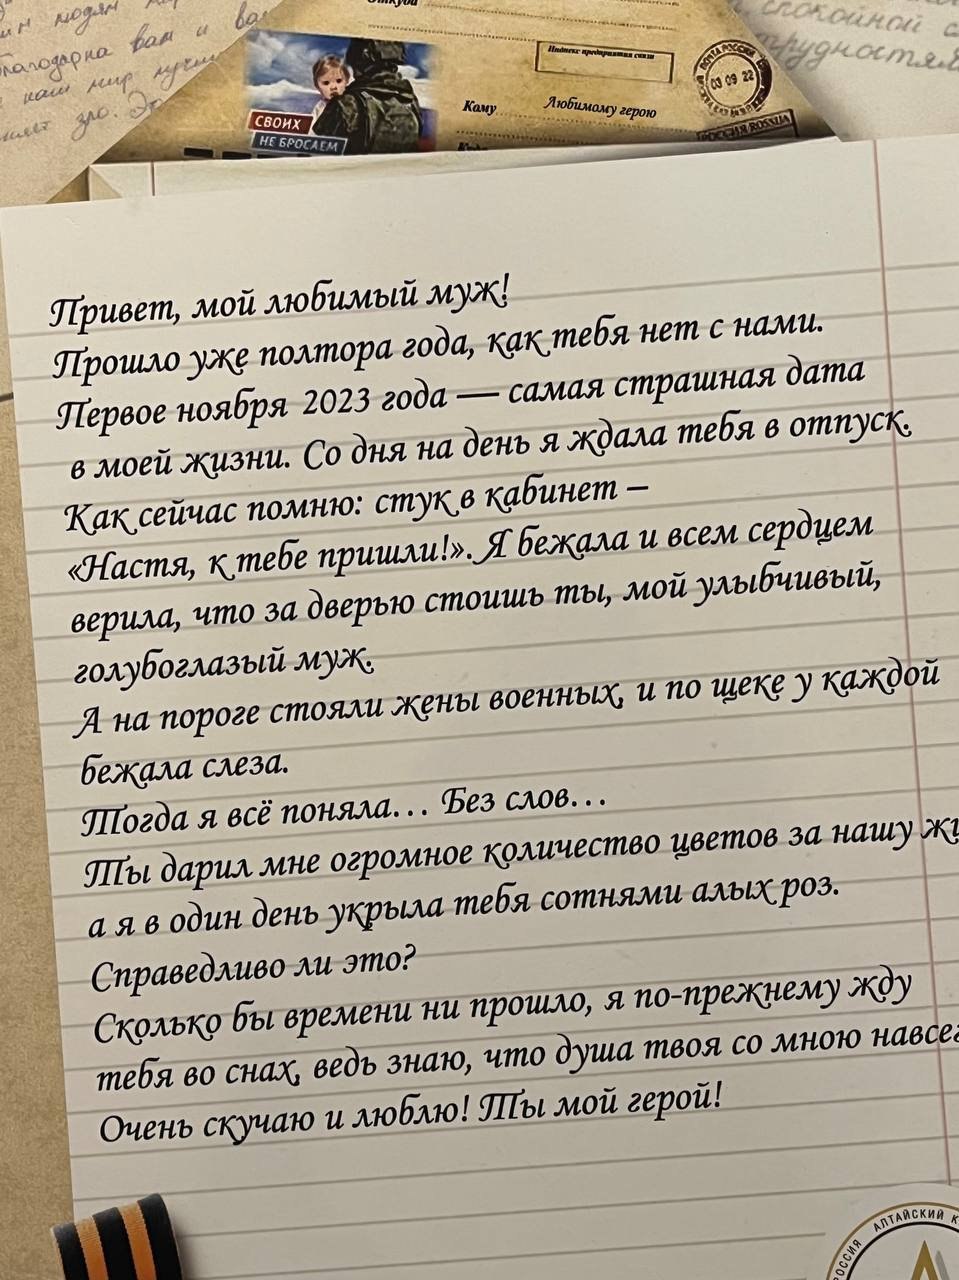 людям
благодарна вам и
наш мир
зло.
Откуда
Индекс предприятия связи
ПОЧТА РОССИИ
03 09 22
Кому Любимому герою
РОССИЯ ROSSIA
СВОИХ
НЕ БРОСАЕМ
спокойной
трудностям
Привет, мой любимый муж!
Прошло уже полтора года, как тебя нет с нами.
Первое ноября 2023 года — самая страшная дата
в моей жизни. Со дня на день я ждала тебя в отпуск.
Как сейчас помню: стук в кабинет –
«Настя, к тебе пришли!». Я бежала и всем сердцем
верила, что за дверью стоишь ты, мой улыбчивый,
голубоглазый муж.
А на пороге стояли жены военных, и по щеке у каждой
бежала слеза.
Тогда я всё поняла... Без слов...
Ты дарил мне огромное количество цветов за нашу
а я в один день укрыла тебя сотнями алых роз.
Справедливо ли это?
Сколько бы времени ни прошло, я по-прежнему жду
тебя во снах, ведь знаю, что душа твоя со мною
Очень скучаю и люблю! Ты мой герой!
РОССИЯ АЛТАЙСКИЙ